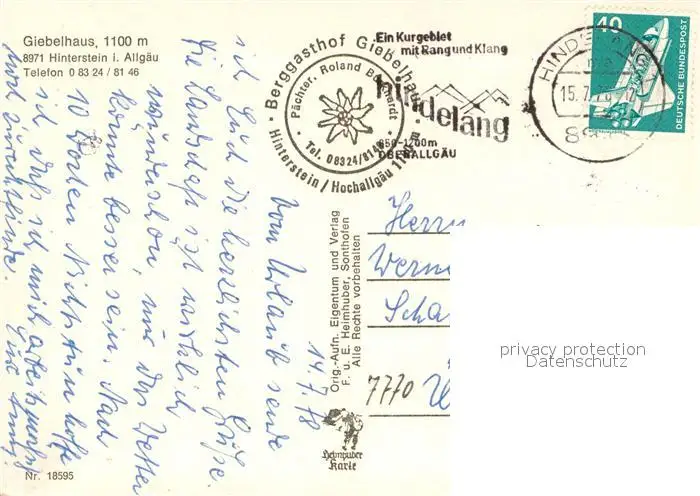 Giebelhaus, 1100 m
8971 Hinterstein i. Allgäu
Telefon 0 83 24 / 81 46
Berggasthof Giebelhaus
Pächter: Roland
Tel. 08324/8146
Hinterstein / Hochallgäu 1100 m
Ein Kurgebiet
mit Rang und Klang
hindelang
850-1200m
OBERALLGÄU
HINDELANG
15.7.78
40
DEUTSCHE BUNDESPOST
14.7.78
Vom Urlaub sende
ich Euch die herzlichsten Grüße.
Die Landschaft ist wirklich
wunderschön, nur das Wetter
könnte besser sein. Nach
10 Wochen Nichtstun hoffe
ich, daß ich mich
und zurechtfinde.
Orig.-Aufn. Eigentum und Verlag
F. u. E. Heimhuber, Sonthofen
Alle Rechte vorbehalten
Heimhuber
Karte
Herrn
Wern
Scha
7770 Ü
privacy protection
Datenschutz
Nr. 18595